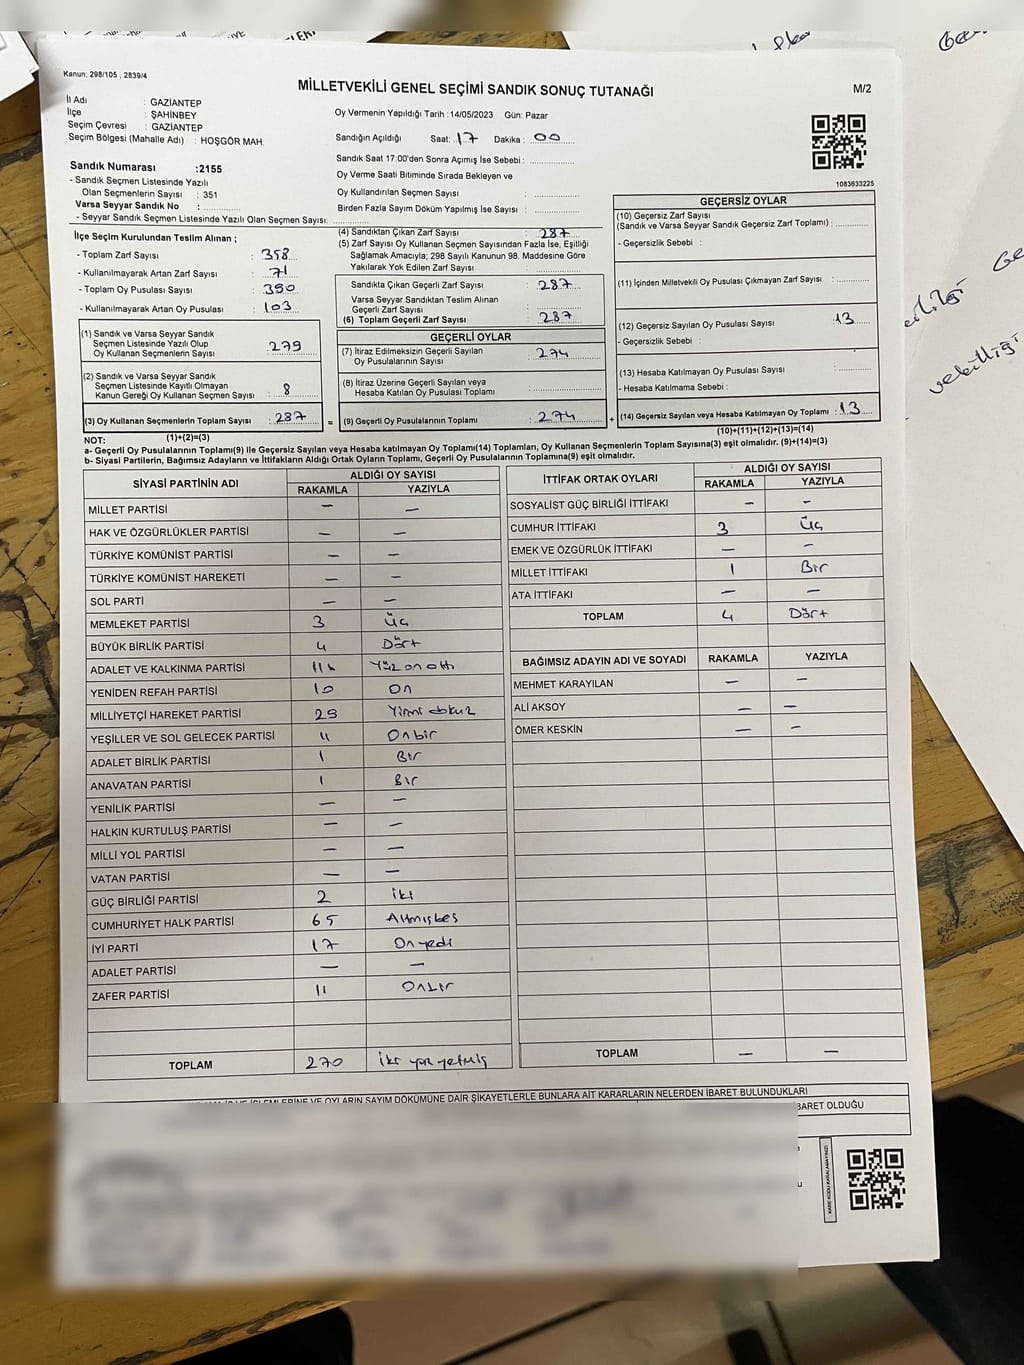 Kanun: 298/105 , 2839/4
MİLLETVEKİLİ GENEL SEÇİMİ SANDIK SONUÇ TUTANAĞI
M/2
İl Adı : GAZİANTEP
İlçe : ŞAHİNBEY
Seçim Çevresi : GAZİANTEP
Seçim Bölgesi (Mahalle Adı) : HOŞGÖR MAH.
Oy Vermenin Yapıldığı Tarih :14/05/2023 Gün: Pazar
Sandığın Açıldığı Saat: 17 Dakika : 00
Sandık Saat 17:00'den Sonra Açımış İse Sebebi :
Oy Verme Saati Bitiminde Sırada Bekleyen ve
Oy Kullandırılan Seçmen Sayısı :
Birden Fazla Sayım Döküm Yapılmış İse Sayısı :
1083633225
Sandık Numarası :2155
- Sandık Seçmen Listesinde Yazılı
Olan Seçmenlerin Sayısı : 351
Varsa Seyyar Sandık No :
- Seyyar Sandık Seçmen Listesinde Yazılı Olan Seçmen Sayısı:
İlçe Seçim Kurulundan Teslim Alınan ;
- Toplam Zarf Sayısı : 358
- Kullanılmayarak Artan Zarf Sayısı : 71
- Toplam Oy Pusulası Sayısı : 390
- Kullanılmayarak Artan Oy Pusulası : 103
(1) Sandık ve Varsa Seyyar Sandık
Seçmen Listesinde Yazılı Olup
Oy Kullanan Seçmenlerin Sayısı : 279
(2) Sandık ve Varsa Seyyar Sandık
Seçmen Listesinde Kayıtlı Olmayan
Kanun Gereği Oy Kullanan Seçmen Sayısı : 8
(3) Oy Kullanan Seçmenlerin Toplam Sayısı : 287
(1)+(2)=(3)
(4) Sandıktan Çıkan Zarf Sayısı : 287
(5) Zarf Sayısı Oy Kullanan Seçmen Sayısından Fazla İse, Eşitliği
Sağlamak Amacıyla; 298 Sayılı Kanunun 98. Maddesine Göre
Yakılarak Yok Edilen Zarf Sayısı :
Sandıkta Çıkan Geçerli Zarf Sayısı : 287
Varsa Seyyar Sandıktan Teslim Alınan
Geçerli Zarf Sayısı :
(6) Toplam Geçerli Zarf Sayısı : 287
GEÇERLİ OYLAR
(7) İtiraz Edilmeksizin Geçerli Sayılan
Oy Pusulalarının Sayısı : 274
(8) İtiraz Üzerine Geçerli Sayılan veya
Hesaba Katılan Oy Pusulası Toplamı :
= (9) Geçerli Oy Pusulalarının Toplamı : 274 +
GEÇERSİZ OYLAR
(10) Geçersiz Zarf Sayısı
(Sandık ve Varsa Seyyar Sandık Geçersiz Zarf Toplamı) :
- Geçersizlik Sebebi :
(11) İçinden Milletvekili Oy Pusulası Çıkmayan Zarf Sayısı :
(12) Geçersiz Sayılan Oy Pusulası Sayısı : 13
- Geçersizlik Sebebi :
(13) Hesaba Katılmayan Oy Pusulası Sayısı :
- Hesaba Katılmama Sebebi :
(14) Geçersiz Sayılan veya Hesaba Katılmayan Oy Toplamı : 13
(10)+(11)+(12)+(13)=(14)
NOT:
a- Geçerli Oy Pusulalarının Toplamı(9) ile Geçersiz Sayılan veya Hesaba katılmayan Oy Toplamı(14) Toplamları, Oy Kullanan Seçmenlerin Toplam Sayısına(3) eşit olmalıdır. (9)+(14)=(3)
b- Siyasi Partilerin, Bağımsız Adayların ve İttifakların Aldığı Ortak Oyların Toplamı, Geçerli Oy Pusulalarının Toplamına(9) eşit olmalıdır.
SİYASİ PARTİNİN ADI ALDIĞI OY SAYISI
RAKAMLA YAZIYLA
MİLLET PARTİSİ — —
HAK VE ÖZGÜRLÜKLER PARTİSİ — —
TÜRKİYE KOMÜNİST PARTİSİ — —
TÜRKİYE KOMÜNİST HAREKETİ — —
SOL PARTİ — —
MEMLEKET PARTİSİ 3 Üç
BÜYÜK BİRLİK PARTİSİ 4 Dört
ADALET VE KALKINMA PARTİSİ 116 Yüz on altı
YENİDEN REFAH PARTİSİ 10 On
MİLLİYETÇİ HAREKET PARTİSİ 29 Yirmi dokuz
YEŞİLLER VE SOL GELECEK PARTİSİ 11 Onbir
ADALET BİRLİK PARTİSİ 1 Bir
ANAVATAN PARTİSİ 1 Bir
YENİLİK PARTİSİ — —
HALKIN KURTULUŞ PARTİSİ — —
MİLLİ YOL PARTİSİ — —
VATAN PARTİSİ — —
GÜÇ BİRLİĞİ PARTİSİ 2 iki
CUMHURİYET HALK PARTİSİ 65 Altmışbeş
İYİ PARTİ 17 On yedi
ADALET PARTİSİ — —
ZAFER PARTİSİ 11 Onbir
TOPLAM 270 iki yüz yetmiş
İTTİFAK ORTAK OYLARI ALDIĞI OY SAYISI
RAKAMLA YAZIYLA
SOSYALİST GÜÇ BİRLİĞİ İTTİFAKI — —
CUMHUR İTTİFAKI 3 Üç
EMEK VE ÖZGÜRLÜK İTTİFAKI — —
MİLLET İTTİFAKI 1 Bir
ATA İTTİFAKI — —
TOPLAM 4 Dört
BAĞIMSIZ ADAYIN ADI VE SOYADI RAKAMLA YAZIYLA
MEHMET KARAYILAN — —
ALİ AKSOY — —
ÖMER KESKİN — —
TOPLAM — —
VE OYLARIN SAYIM DÖKÜMÜNE DAİR ŞİKAYETLERLE BUNLARA AİT KARARLARIN NELERDEN İBARET BULUNDUKLARI
BARET OLDUĞU